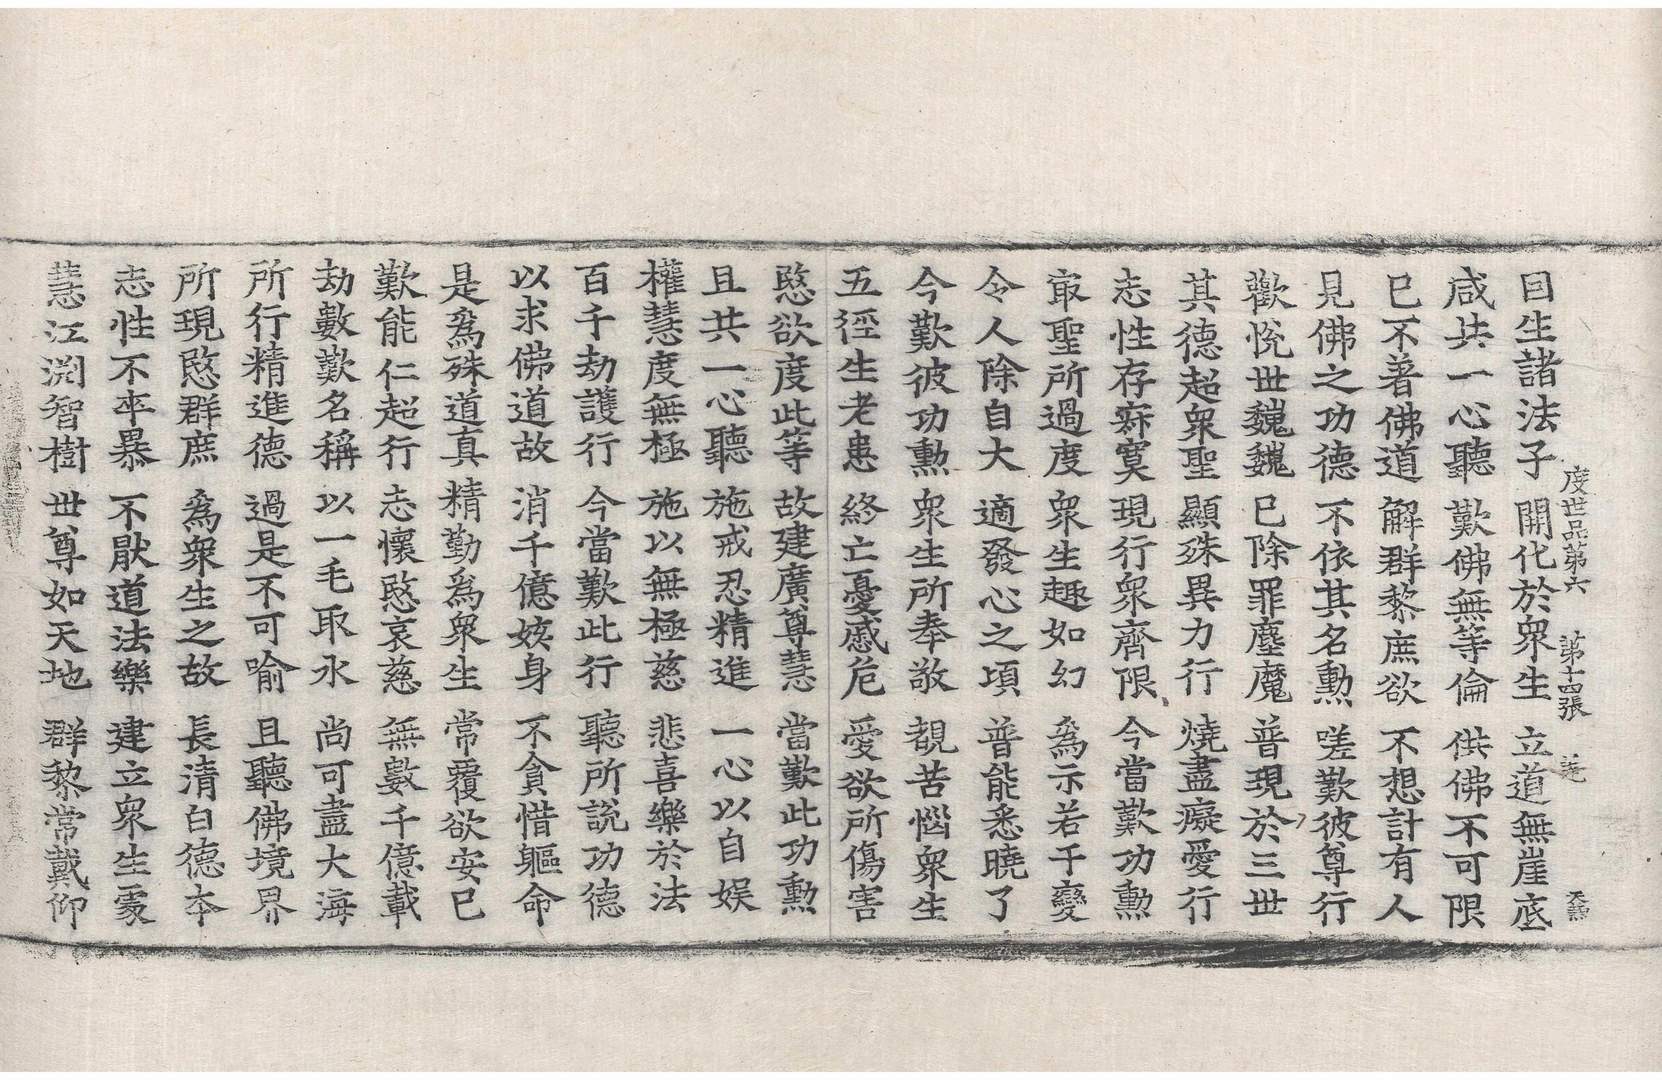 度世品第六　第十四張　談
因生諸法子　開化於衆生　立道無崖底
咸共一心聽　歎佛無等倫　供佛不可限
已不著佛道　解群黎庶欲　不想計有人
見佛之功德　不依其名勳　嗟歎彼尊行
歡悅世巍巍　已除罪塵魔　普現於三世
其德超衆聖　顯殊異力行　燒盡癡愛行
志性存寂寞　現行衆齊限　今當歎功勳
㝡聖所過度　衆生趣如幻　為示若千變
令人除自大　適發心之頃　普能悉曉了
今歎彼功勳　衆生所奉敬　覩苦惱衆生
五徑生老患　終亡憂慼危　愛欲所傷害
愍欲度此等　故建廣尊慧　當歎此功勳
且共一心聽　施戒忍精進　一心以自娛
權慧度無極　施以無極慈　悲喜樂於法
百千劫護行　今當歎此行　聽所說功德
以求佛道故　消千億姟身　不貪惜軀命
是為殊道真　精勤為衆生　常覆欲安己
歎能仁超行　志懷愍哀慈　無數千億載
劫數歎名稱　以一毛取水　尚可盡大海
所行精進德　過是不可喻　且聽佛境界
所現愍群庶　為衆生之故　長清白德本
志性不卒暴　不猒道法樂　建立衆生靈
慧江渕智樹　世尊如天地　群黎常戴仰